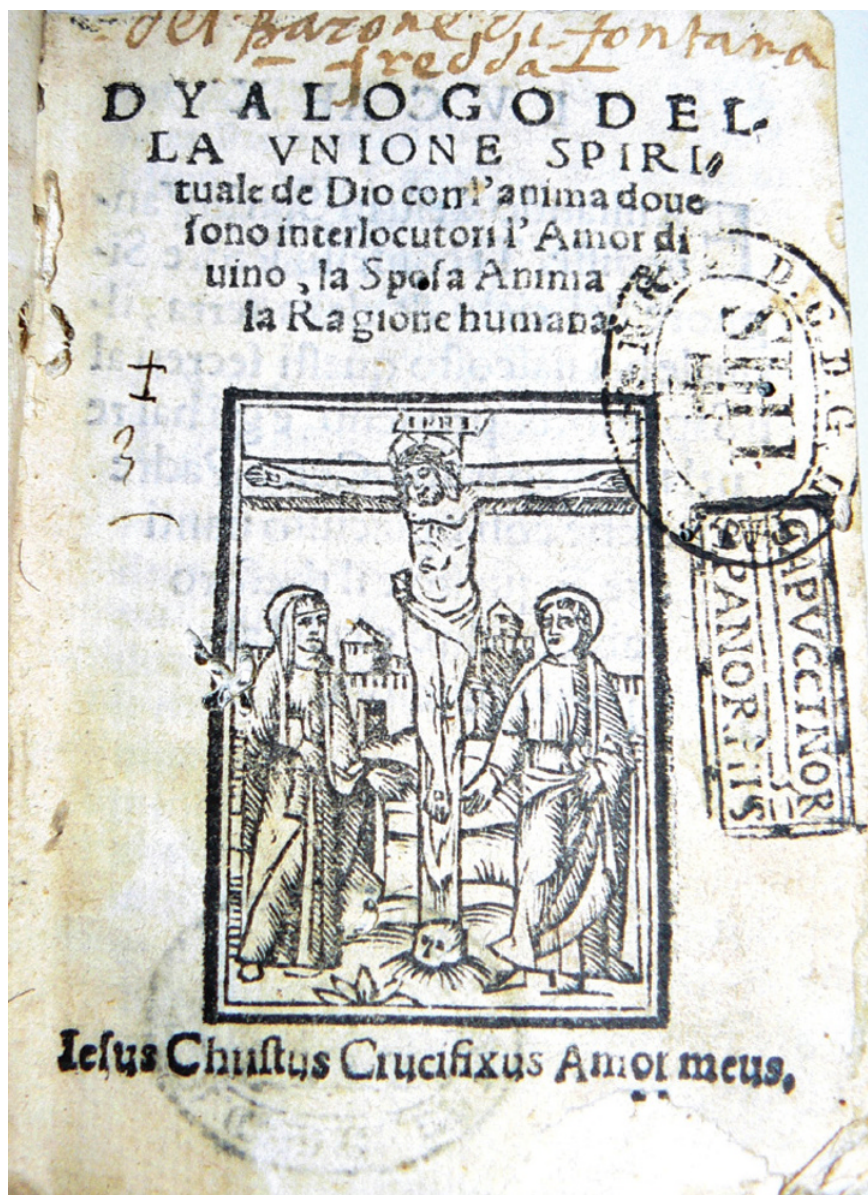 del Barone di fontana
fredda
DYALOGO DEL-
LA VNIONE SPIRI-
tuale de Dio con l'anima doue
sono interlocutori l'Amor di
uino, la Sposa Anima &
la Ragione humana
D. C. D. G.
3
INRI
CAPVCCINOR
PANORMIS
Iesus Christus Crucifixus Amor meus.